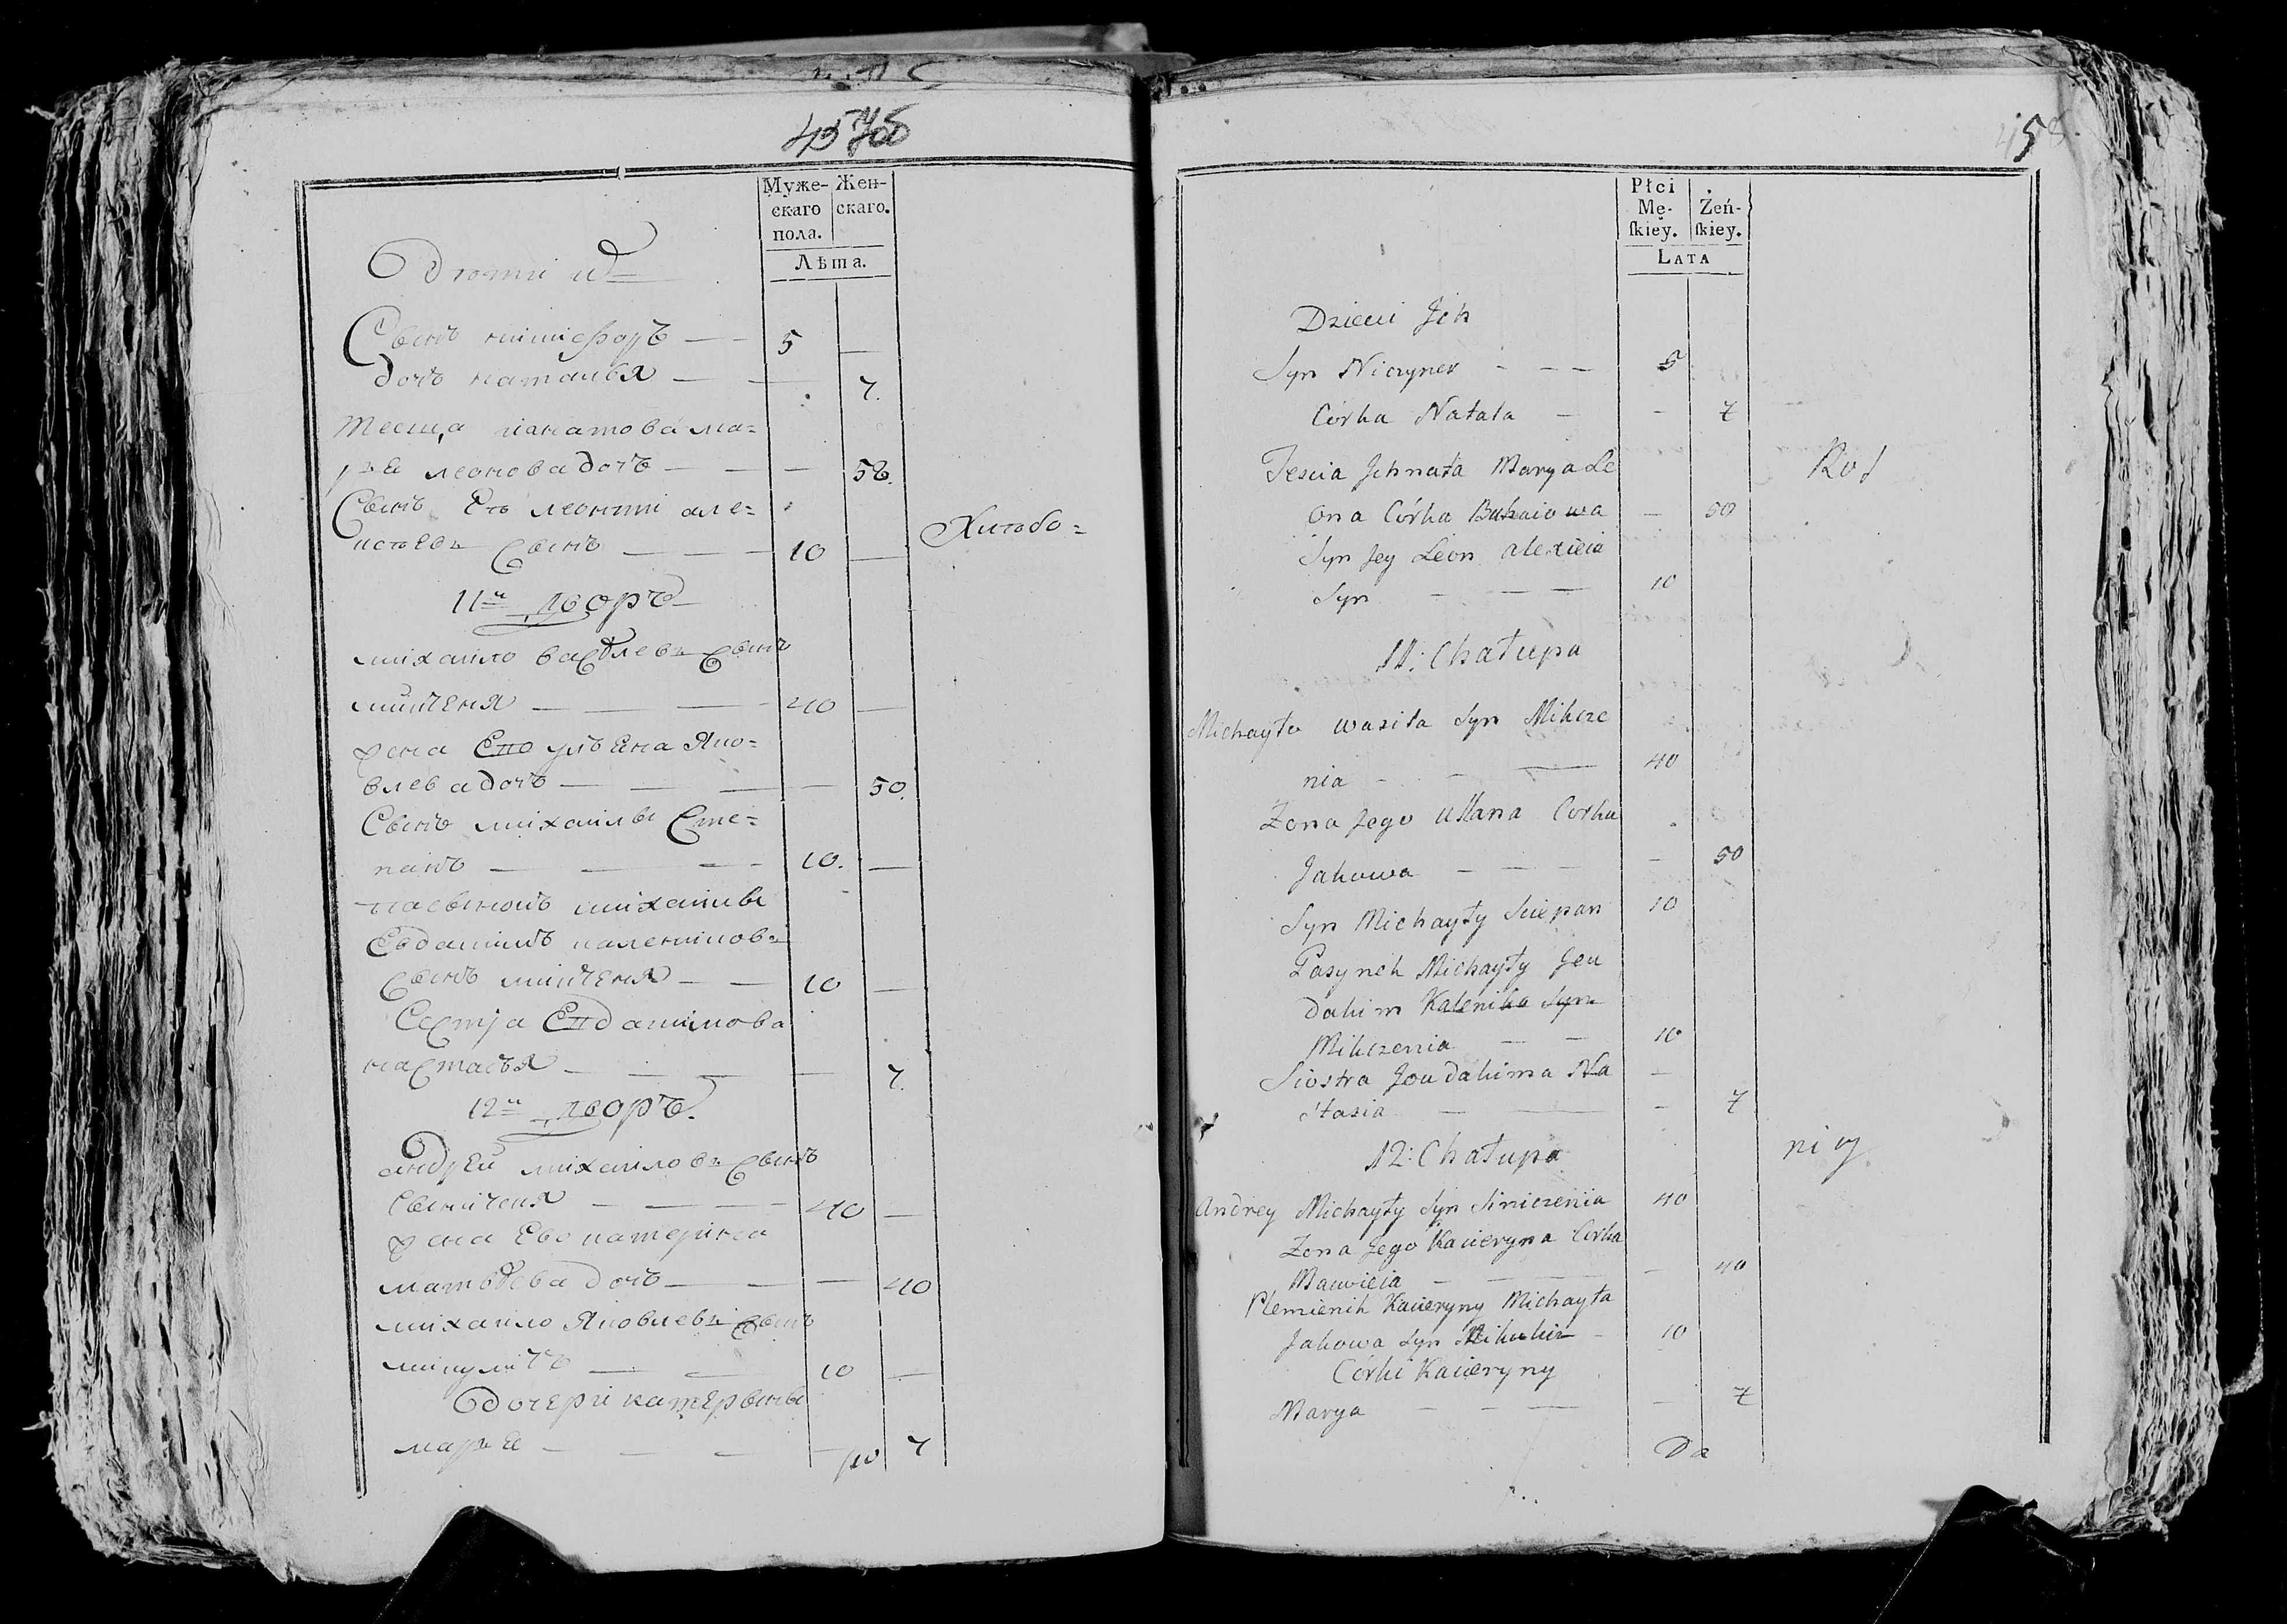 Муже-
скаго
пола.
Жен-
скаго.
Лѣта.
Сынъ 5
дочь наталья 7.
теща
леонова дочь 58.
Сынъ Ея леонти але-
сынъ 10
11й дворъ
михайло василевъ сынъ
минченя 40
жена Его ульяна Яко-
влева дочь 50.
Сынъ михайлы Сте-
панъ 10.
пасынокъ михайлы
Евдакимъ калениковъ
сынъ минченя 10
Сестра Евдакимова
настасья 7.
12й дворъ.
андрей михайловъ сынъ
40
жена Ево катерина
матвѣева дочь 40
михайло Яковлевъ сынъ
микуличъ 10
дочери катерыны
марья 7
458
Płci
Mę-
ſkiey.
Żeń-
ſkiey.
LATA
Dzieci Jch
Syn Niczyper 5
Córka Natala 7
Teścia Jhnata Marya Le
ona Córka 50
Syn Jey Leon Alexieia
Syn 10
11: Chałupa
Michayło Wasila Syn Mikcze
nia 40
Żona Jego Ullana Corka
Jakowa 50
Syn Michayły Sciepan 10
Pasynek Michayły Jeu
dakim Kalenika Syn
Mikczenia 10
Siostra Jeudakima Na
stasia 7
12: Chałupa
Andrey Michayły Syn Siniczenia 40
Żona Jego Kacieryna Córka
Mawieia 40
Plemienik Kacieryny Michayła
Jakowa Syn 10
Córki Kacieryny
Marya 7
Da